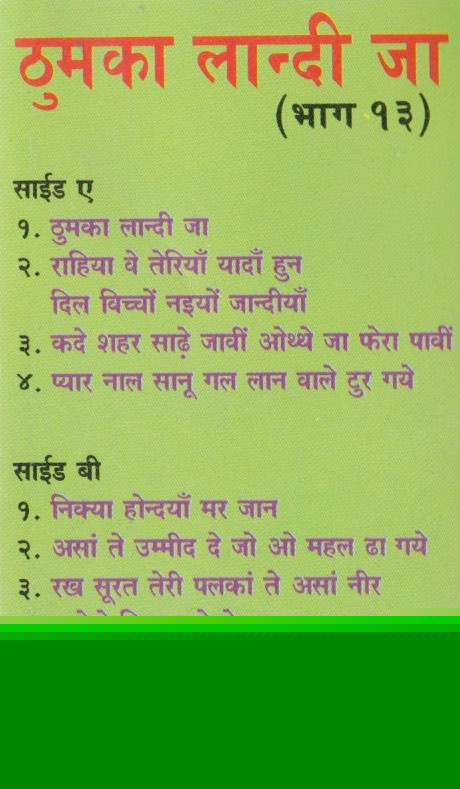 ठुमका लान्दी जा
(भाग १३)
साईड ए
१. ठुमका लान्दी जा
२. राहिया वे तेरियाँ यादाँ हुन
दिल विच्चों नइयों जान्दीयाँ
३. कदे शहर साढ़े जावीं ओथ्थे जा फेरा पावीं
४. प्यार नाल सानू गल लान वाले टुर गये
साईड बी
१. निक्या होन्दयाँ मर जान
२. असां ते उम्मीद दे जो ओ महल ढा गये
३. रख सूरत तेरी पलकां ते असां नीर